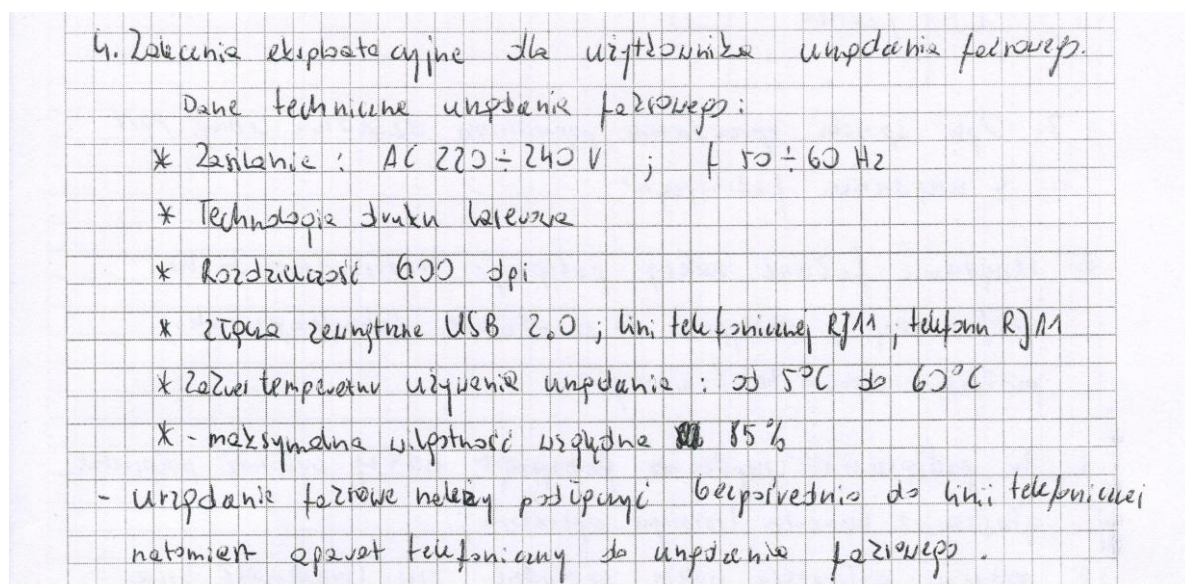 4. Zalecenia eksploatacyjne dla użytkownika urządzenia faksowego.
Dane techniczne urządzenia faksowego:
* Zasilanie : AC 220 ÷ 240 V ; f 50 ÷ 60 Hz
* Technologia druku laserowa
* Rozdzielczość 600 dpi
* złącza zewnętrzne USB 2.0 ; lini telefonicznej RJ11 ; telefonu RJ11
* zakres temperatur używania urządzenia : od 5°C do 60°C
* - maksymalna wilgotność względna 85%
- urządzenie faksowe należy podłączyć bezpośrednio do linii telefonicznej
natomiast aparat telefoniczny do urządzenia faksowego.